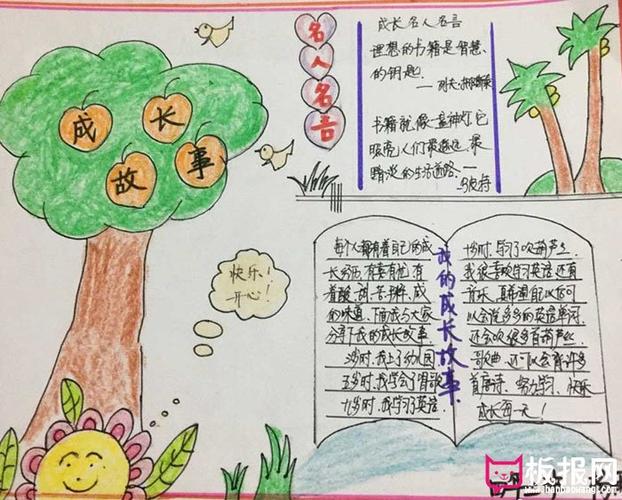 成长故事
名人名言
成长名人名言
理想的书籍是智慧
的钥匙
书籍就像一盏神灯,它
照亮人们最遥远、最
暗淡的生活道路
快乐!
开心!
我的成长故事
每个人都有着自己的成
长经历,有喜有忧,有
着酸、甜、苦、辣、咸
的味道,下面我与大家
分享下我的成长故事。
3岁时,我上了幼儿园
五岁时,我学会了唱歌
九岁时,我学习了英语
十岁时,学习了吹葫芦丝,
我很喜欢学习英语还有
音乐,真希望自己以后可
以会说多多的英语单词,
还会吹很多首葫芦丝
歌曲,还可以会背许多
首唐诗,努力学习,快乐
成长每一天!
板报网
www.banbaowang.com